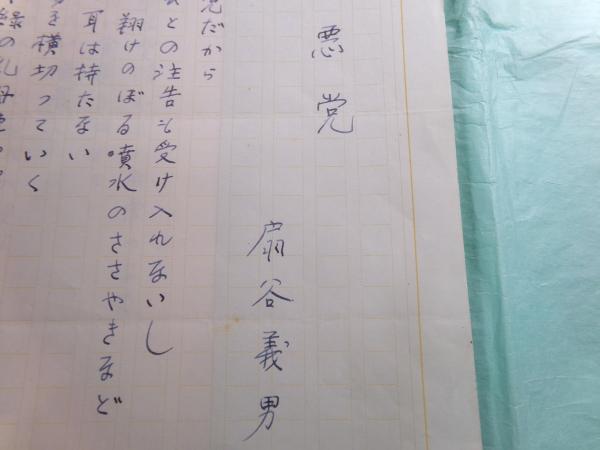 悪党
扇谷義男
だから
との注告も受け入れないし
翔けのぼる噴水のささやきなど
耳は持たない
横切っていく